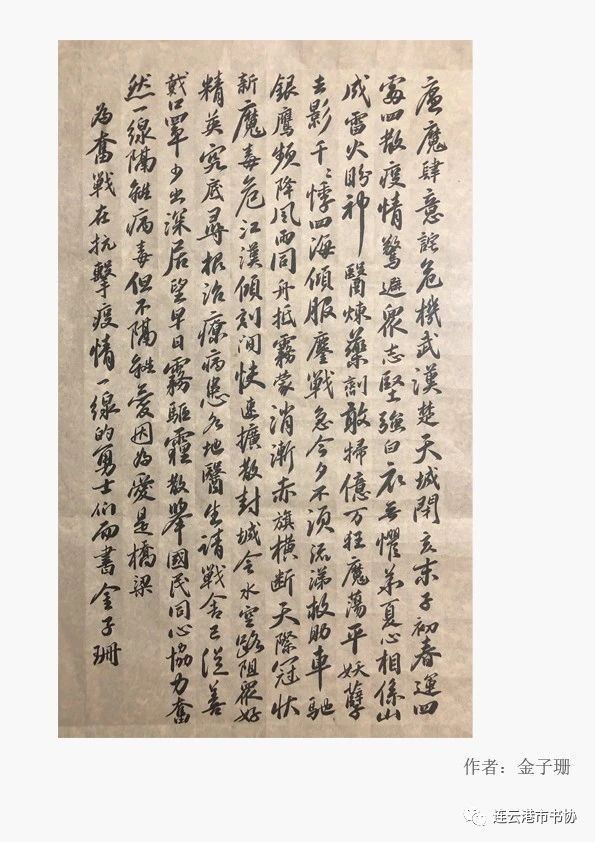 瘟魔肆意詫危機武漢楚天城閉亥末子初春運四
處四散疫情驚避眾志堅強白衣無懼華夏心相係山
成雷火盼神醫煉藥劑敢掃億万狂魔蕩平妖孽
去影千〻悸四海傾服鏖戰急今夕不須流涕救助車馳
銀鷹頻降風雨同舟抵霧蒙消漸赤旗橫斷天際冠狀
新魔毒危江漢傾刻間快速擴散封城令水空路阻眾好
精英究底尋根治療病患各地醫生請戰舍己從善
戴口罩少出深居望早日霧驅霾散舉國民同心協力奮
然一線隔離病毒但不隔離愛因為愛是橋梁
為奮戰在抗擊疫情一線的勇士们而書金子珊
作者：金子珊
连云港市书协